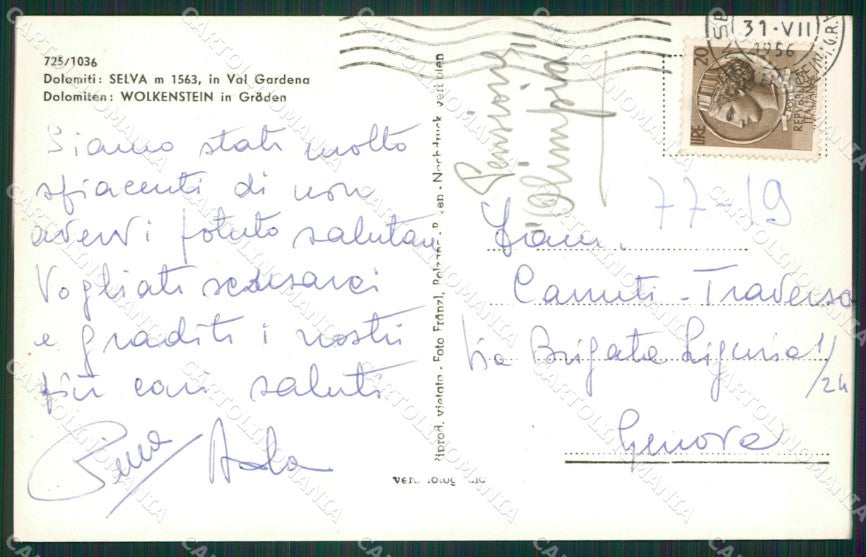 725/1036
Dolomiti: SELVA m 1563, in Val Gardena
Dolomiten: WOLKENSTEIN in Gröden
Siamo stati molto
spiacenti di non
avervi potuto salutare
Vogliate scusarci
e gradite i nostri
più cari saluti
Pensione
"Olimpia"
31-VII
1956
LIRE 20
REPUBBLICA
ITALIANA
77-19
Fam.
Canuti-Traverso
Via Brigata Liguria 1/24
Genova
Riprod. vietata - Foto Fränzl, Bolzano-Bozen - Nachdruck verboten
Vera fotografia
CARTOLINOMANIA